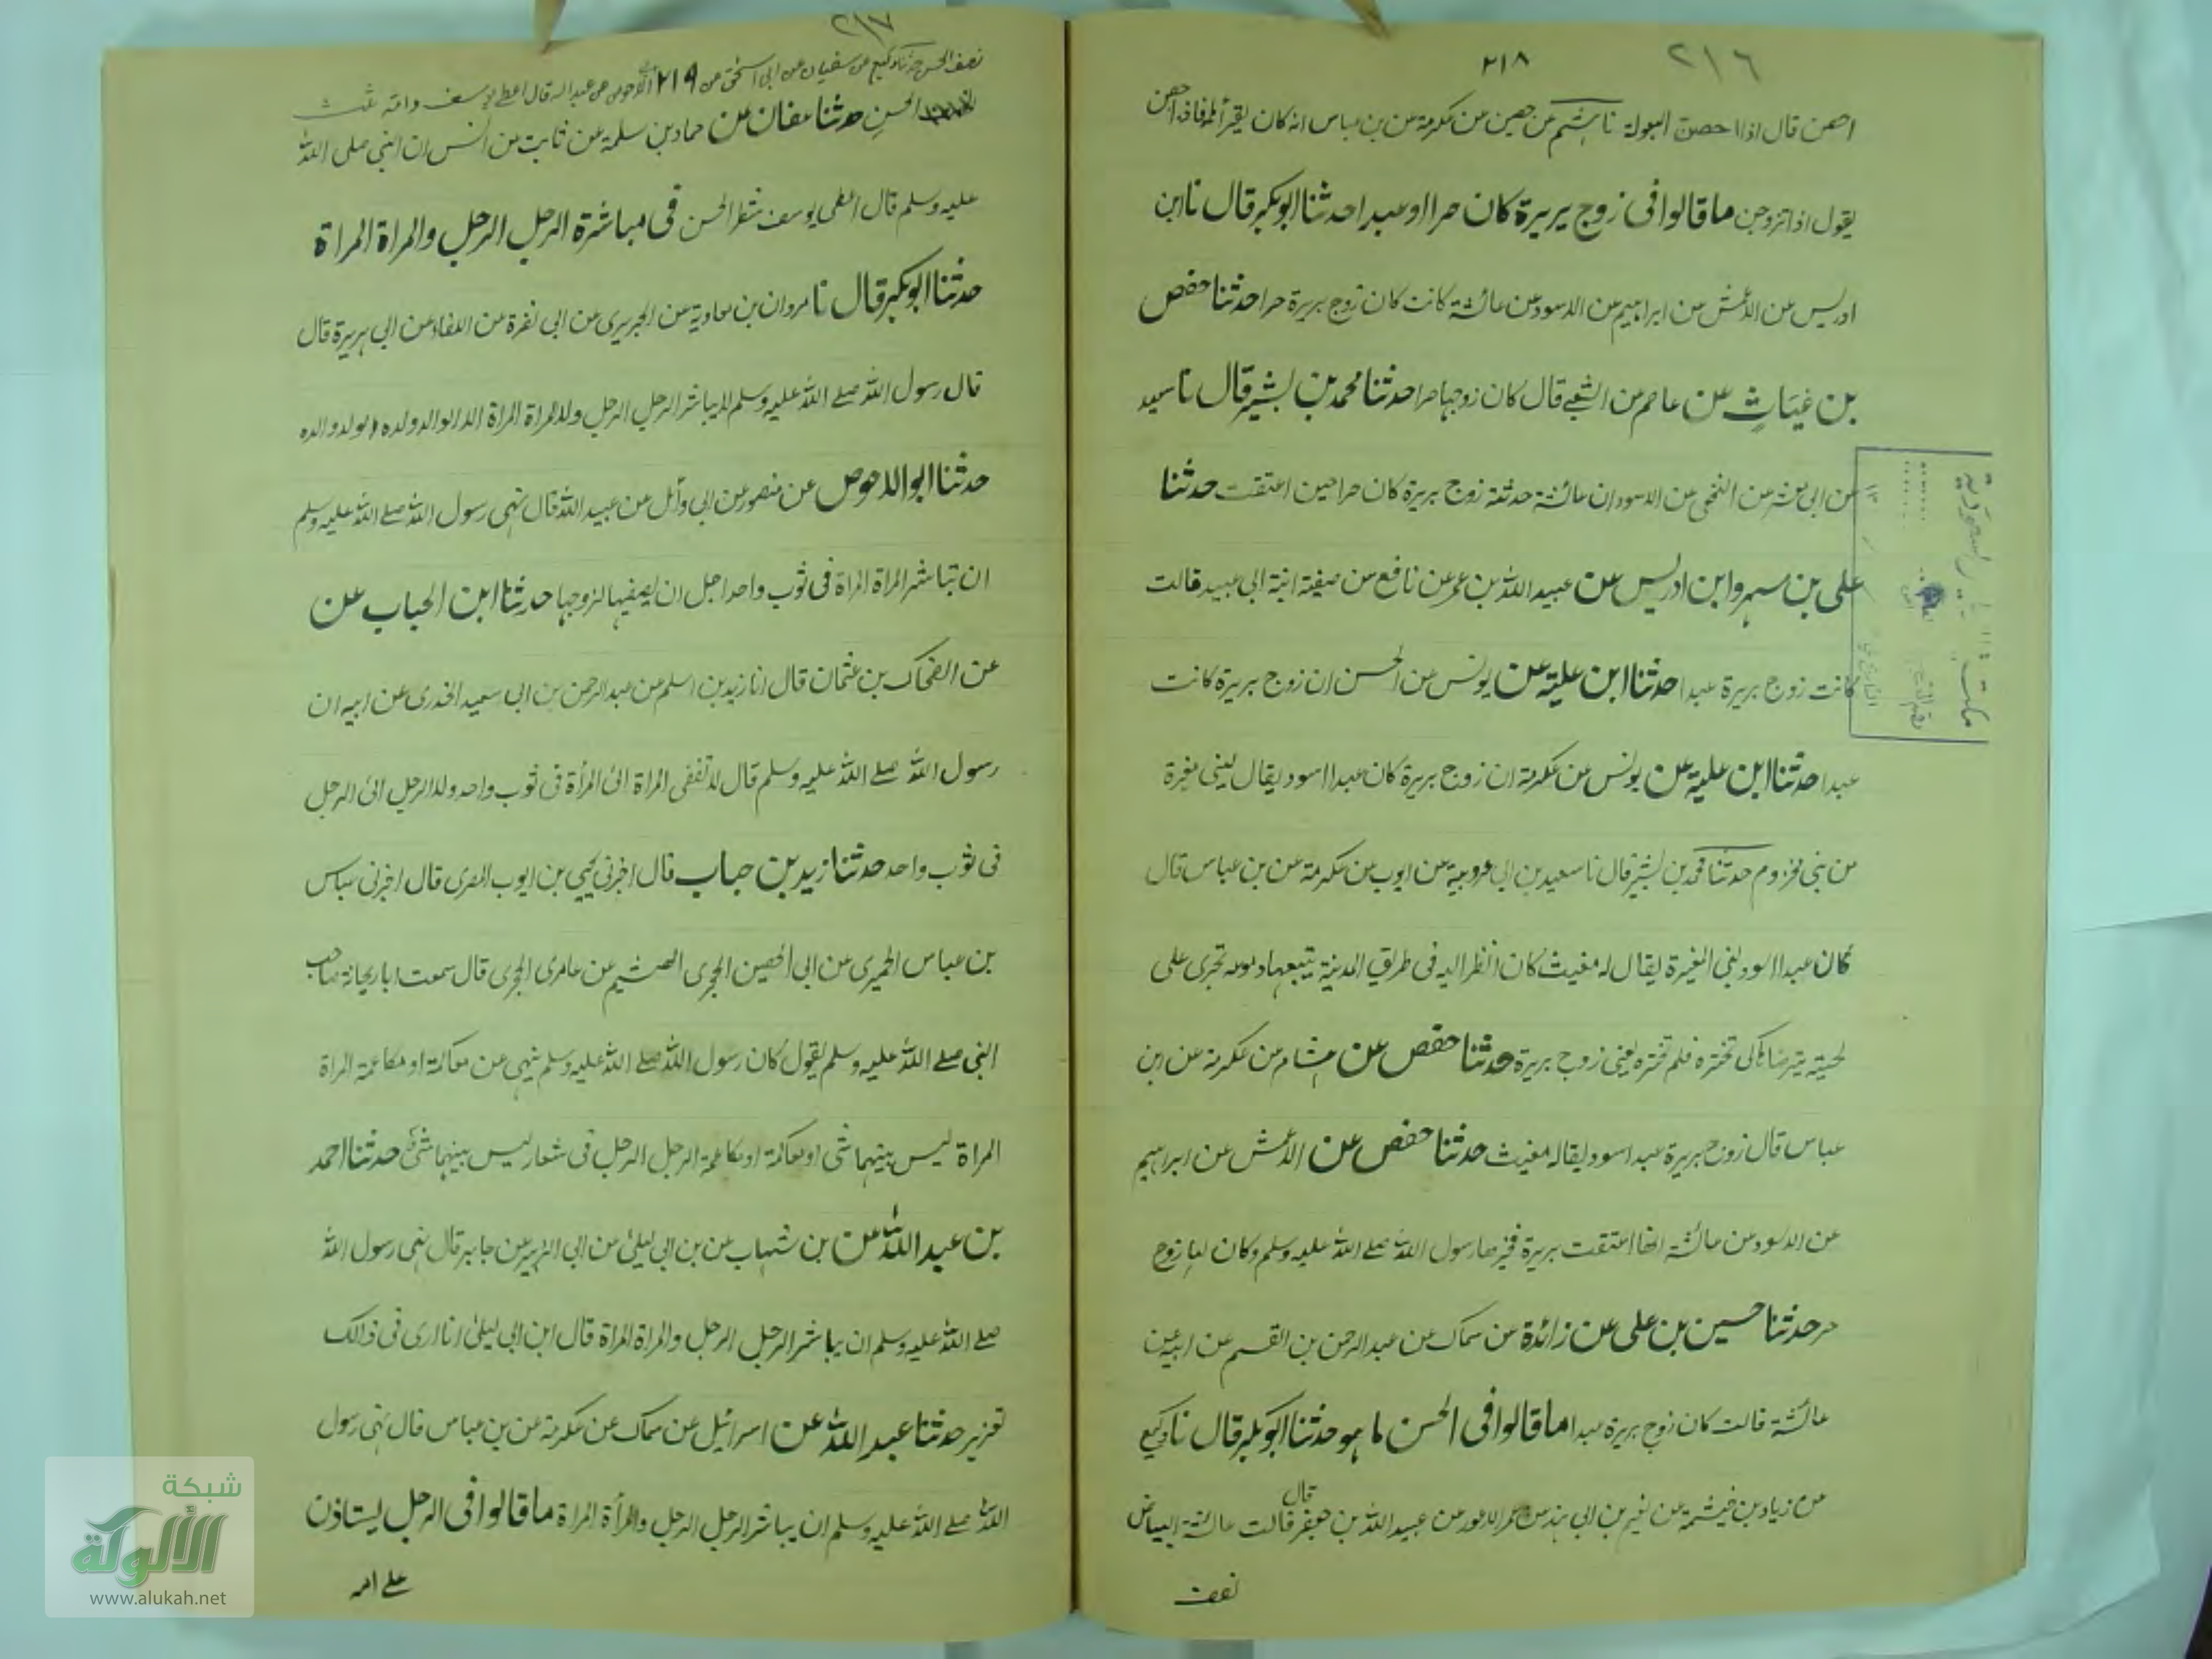 ٢١٦
٢١٨
احصن قال اذا احصن البعولة نا هشيم عن حصين عن عكرمة عن بن عباس انه كان يقرأها فاذا احصن
يقول اذا تزوجن ما قالوا فى زوج بريرة كان حرا او عبدا حدثنا ابو بكر قال نا ابن
ادريس عن الاعمش عن ابراهيم عن الاسود عن عائشة كانت كان زوج بريرة حرا حدثنا حفص
بن غياث عن عاصم عن الشعبى قال كان زوجها حرا حدثنا محمد بن بشير قال نا سعيد
عن ابى معشر عن النخعى عن الاسود ان عائشة حدثته زوج بريرة كان حرا حين اعتقت حدثنا
على بن مسهر وابن ادريس عن عبيد الله بن عمر عن نافع عن صفية ابنة ابى عبيد قالت
كانت زوج بريرة عبدا حدثنا ابن علية عن يونس عن الحسن ان زوج بريرة كانت
عبدا حدثنا ابن علية عن يونس عن عكرمة ان زوج بريرة كان عبدا اسود يقال لبنى مغيرة
من بنى مخزوم حدثنا محمد بن بشير قال نا سعيد بن ابى عروبية عن ايوب عن عكرمة عن بن عباس قال
كان عبدا اسود لبنى المغيرة يقال له مغيث كان انظر اليه فى طريق المدينة يتبعها تجرى على
لحيته يترضاها كى تختره فلم تختره يعنى زوج بريرة حدثنا حفص عن هشام عن عكرمة عن ابن
عباس قال زوج بريرة عبد اسود يقاله مغيث حدثنا حفص عن الاعمش عن ابراهيم
عن الاسود عن عائشة انها اعتقت بريرة فخيرها رسول الله صلى الله عليه وسلم وكان لها زوج
حر حدثنا حسين بن على عن زائدة عن سماك عن عبد الرحمن بن القسم عن ابيه عن
عائشة قالت كان زوج بريرة عبدا ما قالوا فى الحسن ما هو حدثنا ابو بكر قال نا وكيع
قال
عن زياد بن خيثمة عن نعيم بن ابى هند عن عبيد الله بن جعفر قالت عائشة البياض
نصف
٢١٧
٢١٩
نصف الحسن حدثنا وكيع عن سفيان عن ابى اسحق عن ابى الاحوص عن عبد الله قال اعطى يوسف وامه ثلث
الحسن حدثنا عفان عن حماد بن سلمة عن ثابت عن انس ان النبى صلى الله
عليه وسلم قال اعطى يوسف شطر الحسن فى مباشرة الرجل الرجل والمراة المراة
حدثنا ابو بكر قال نا مروان بن معاوية عن الجريرى عن ابى نضرة عن الطفاوى عن ابى هريرة قال
قال رسول الله صلى الله عليه وسلم لا يباشر الرجل الرجل ولا المراة المراة الا الوالد ولده او لولد والده
حدثنا ابو الاحوص عن منصور عن ابى وائل عن عبيد الله قال نهى رسول الله صلى الله عليه وسلم
ان تباشر المراة المراة فى ثوب واحد اجل ان يصفها لزوجها حدثنا ابن الحباب عن
عن الضحاك بن عثمان قال انا زيد بن اسلم عن عبد الرحمن بن ابى سعيد الخدرى عن ابيه ان
رسول الله صلى الله عليه وسلم قال لا تفضى المراة الى المرأة فى ثوب واحد ولا الرجل الى الرجل
فى ثوب واحد حدثنا زيد بن حباب قال اخبرنى يحيى بن ايوب المصرى قال اخبرنى عياس
بن عباس الحميرى عن ابى الحصين الحجرى الهثيم عن عامرى الحجرى قال سمعت ابا ريحانة صاحب
النبى صلى الله عليه وسلم يقول كان رسول الله صلى الله عليه وسلم ينهى عن معاكمة او مكاعمة المراة
المراة ليس بينهما شى او معاكمة او مكاعمة الرجل الرجل فى شعار ليس بينهما شى حدثنا احمد
بن عبد الله عن بن شهاب عن بن ابى ليلى عن ابى الزبير عن جابر قال نهى رسول الله
صلى الله عليه وسلم ان يباشر الرجل الرجل والمراة المراة قال ابن ابى ليلى انا ارى فى ذالك
تعزير حدثنا عبيد الله عن اسرائيل عن سماك عن عكرمة عن بن عباس قال نهى رسول
الله صلى الله عليه وسلم ان يباشر الرجل الرجل والمرأة المراة ما قالوا فى الرجل ليستاذن
على امه
شبكة
الألوكة
www.alukah.net